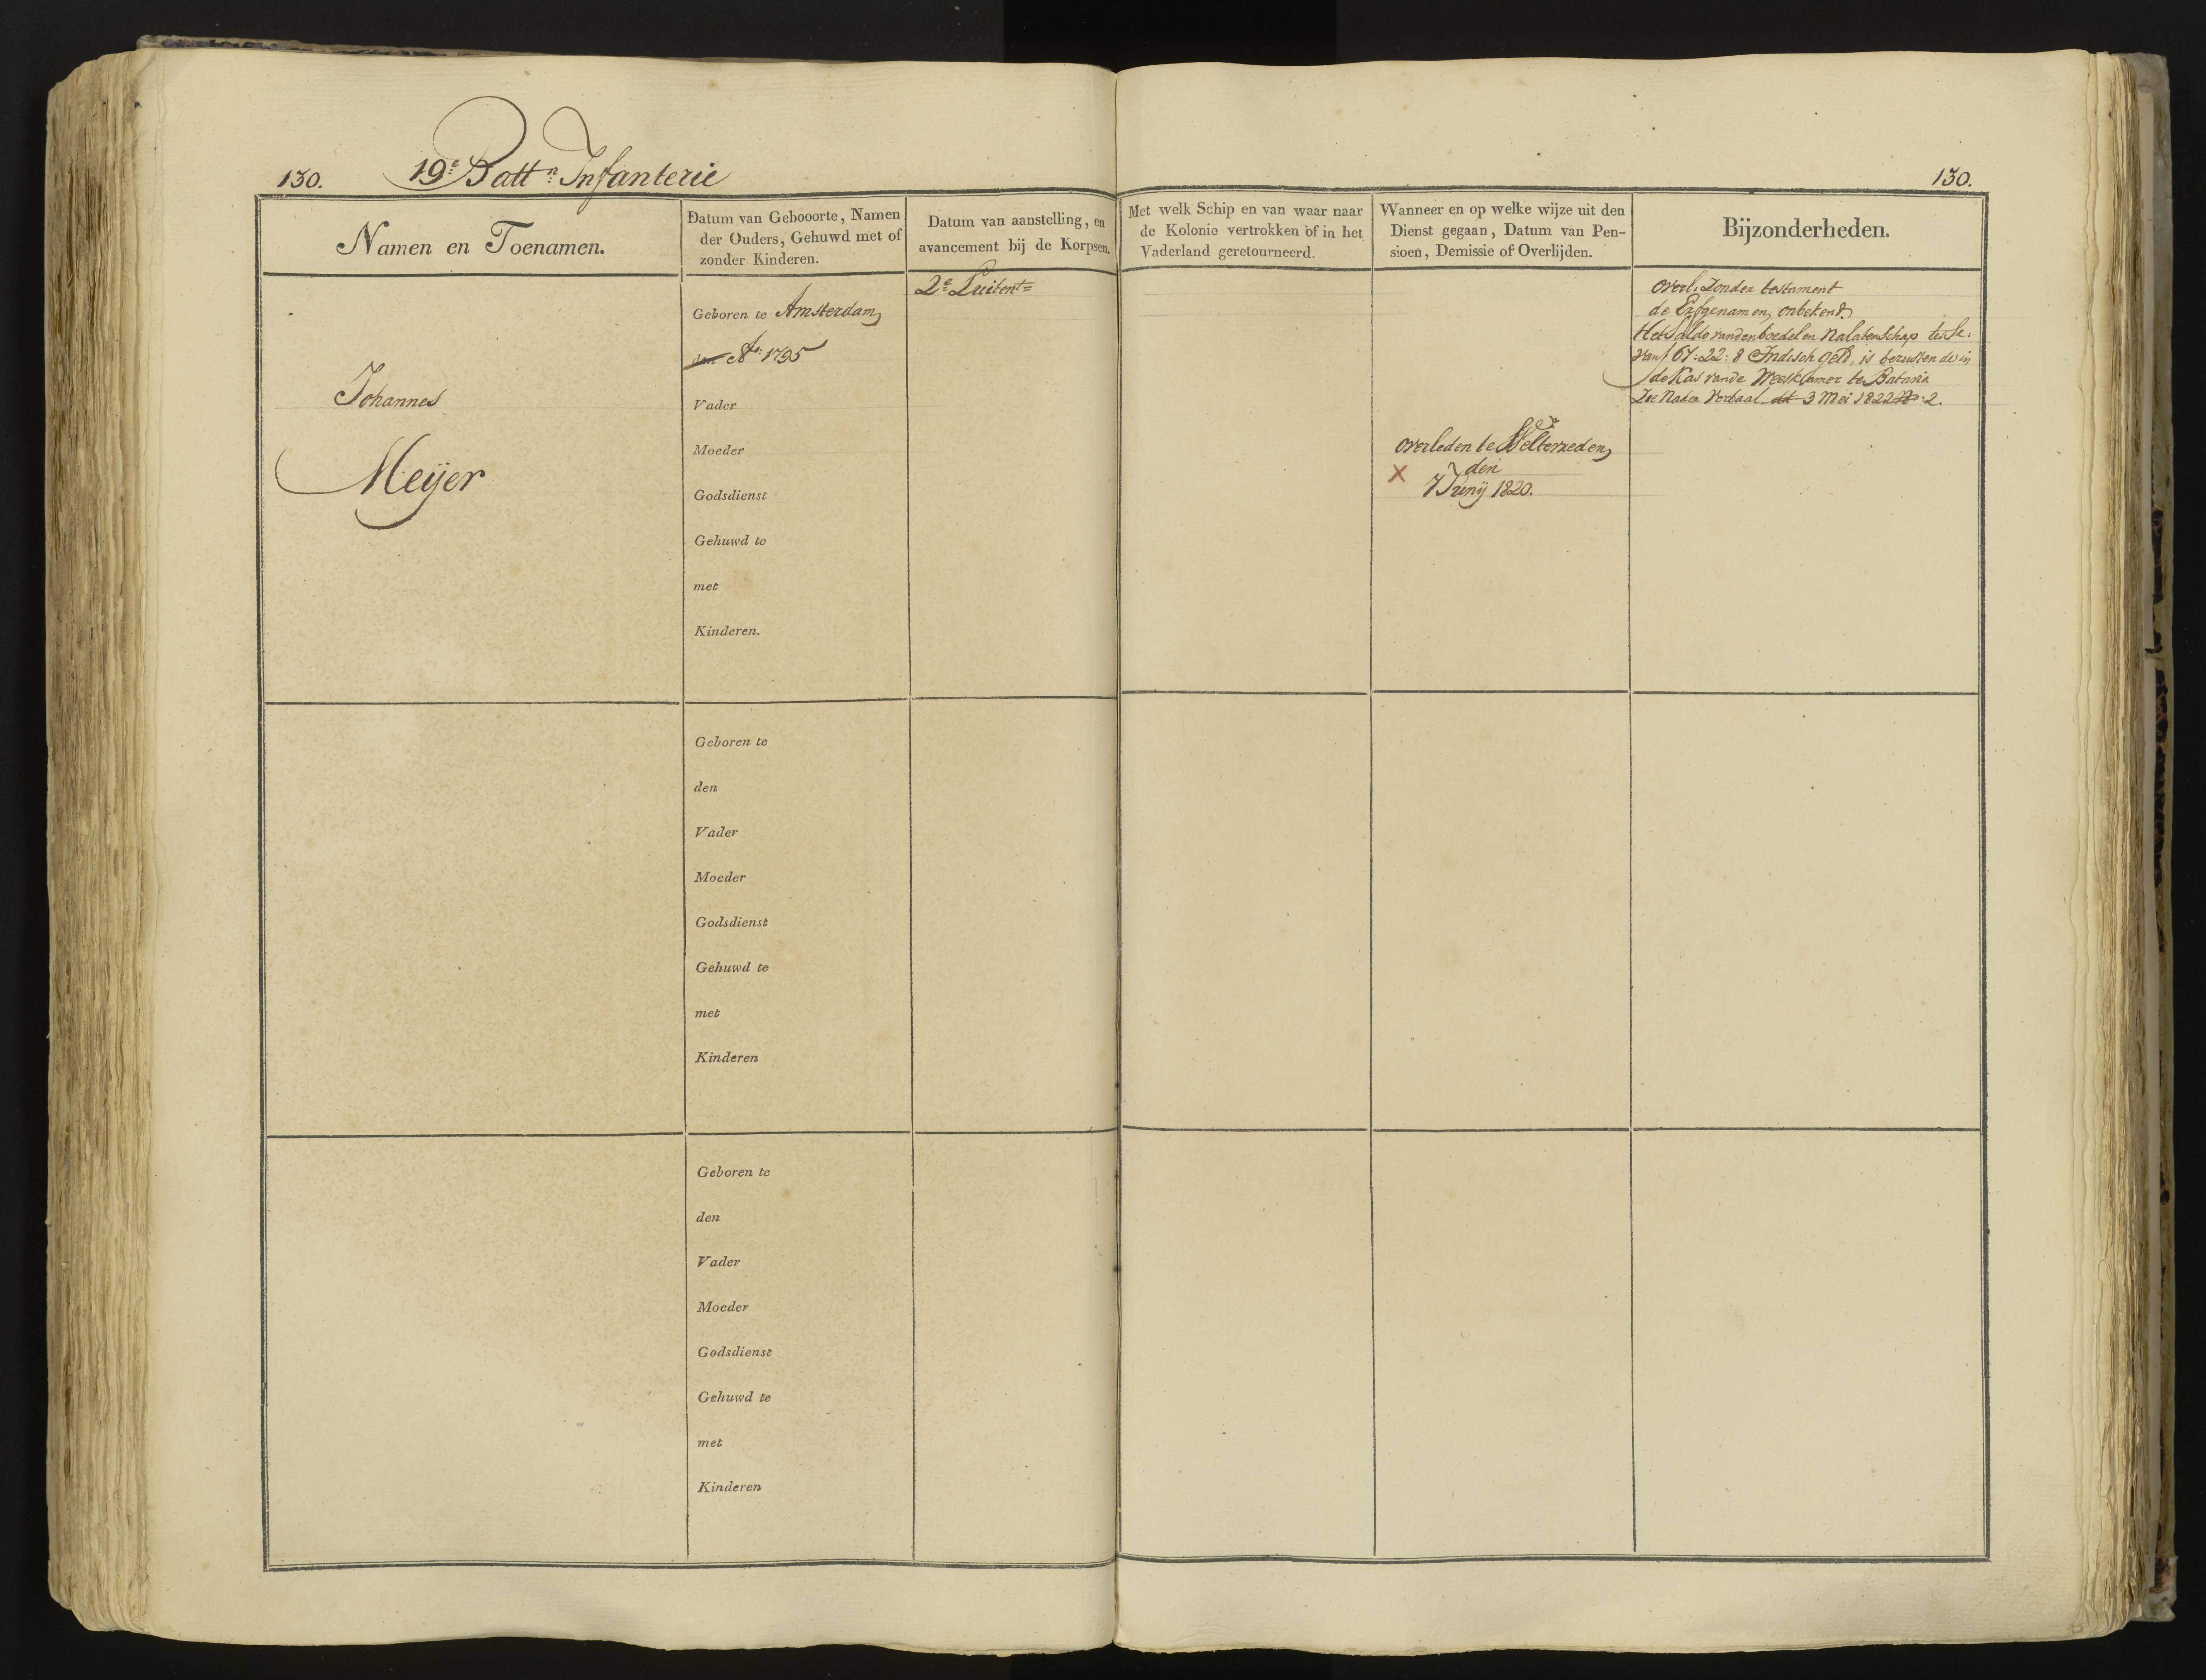 130.
19e Battn Infanterie
130.
Namen en Toenamen.
Datum van Gebooorte, Namen
der Ouders, Gehuwd met of
zonder Kinderen.
Datum van aanstelling, en
avancement bij de Korpsen.
Met welk Schip en van waar naar
de Kolonie vertrokken of in het
Vaderland geretourneerd.
Wanneer en op welke wijze uit den
Dienst gegaan, Datum van Pen-
sioen, Demissie of Overlijden.
Bijzonderheden.
Johannes
Meijer
Geboren te Amsterdam,
den Ao 1795
Vader
Moeder
Godsdienst
Gehuwd te
met
Kinderen.
2e Luitent=
overleden te Weltevreden,
den
x
7 Junij 1820.
overl. Zonder testament
de Erfgenamen, onbekend.
Het Saldo van den boedel en Nalatenschap
van f 67:22:8 Indisch geld, is berustende in
de Kas van de Weeskamer te Batavia
Zie Nader Verbaal dd 3 Mei 1822 No: 2.
Geboren te
den
Vader
Moeder
Godsdienst
Gehuwd te
met
Kinderen
Geboren te
den
Vader
Moeder
Godsdienst
Gehuwd te
met
Kinderen